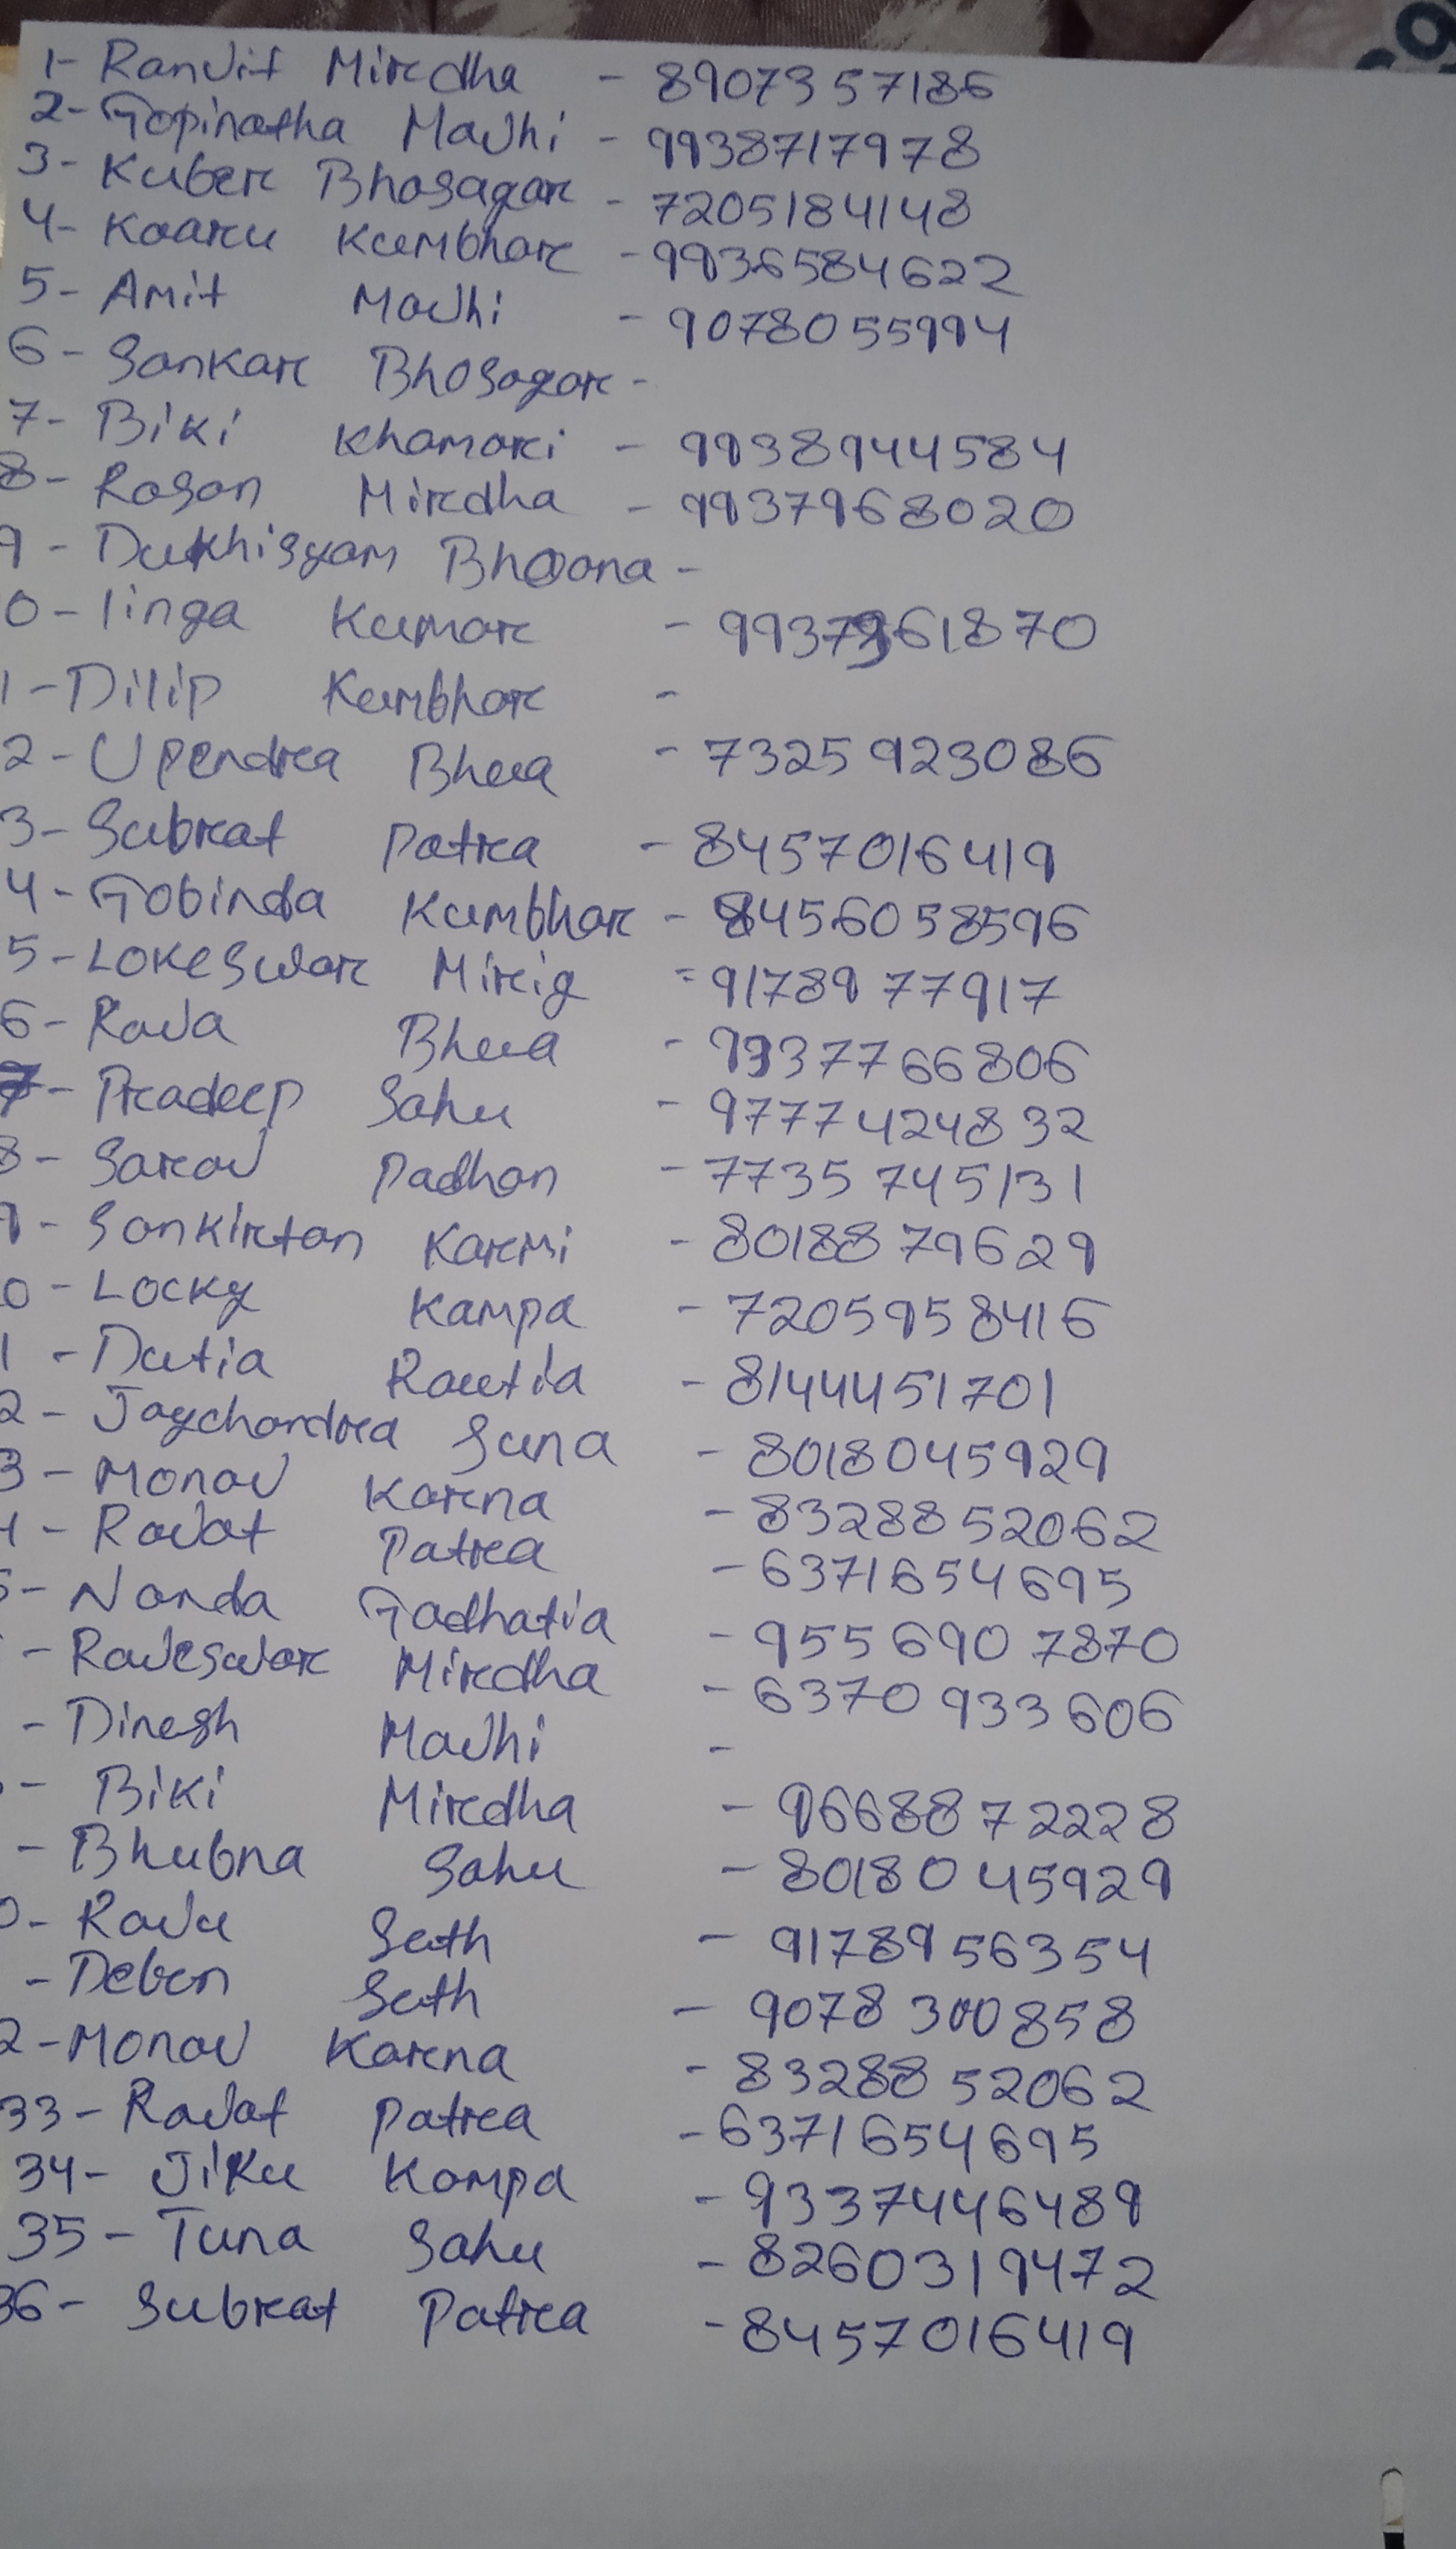 1- Ranjit Mirdha - 8907357186
2- Gopinatha Majhi - 9938717978
3- Kuber Bhosagar - 7205184148
4- Kaaru Kumbhar - 9936584622
5- Amit Majhi - 9078055994
6- Sankar Bhosagar -
7- Biki Khamari - 9938944584
8- Rosan Mirdha - 9937968020
9- Dukhisyam Bhoona -
0- linga Kumar - 9937961870
1- Dilip Kumbhar -
2- Upendra Bhua - 7325923086
3- Subrat Patra - 8457016419
4- Gobinda Kumbhar - 8456058596
5- Lokeswar Mirig - 9178977917
6- Raja Bhua - 9937766806
7- Pradeep Sahu - 9777424832
8- Saroj Padhan - 7735745131
9- Sankirtan Karmi - 8018879629
0- Locky Kampa - 7205958416
1- Dutia Rautia - 8144451701
2- Jaychandra Suna - 8018045929
3- Monoj Karna - 8328852062
4- Rajat Patra - 6371654695
5- Nanda Gadhatia - 9556907870
- Rajeswar Mirdha - 6370933606
- Dinesh Majhi -
- Biki Mirdha - 9668872228
- Bhubna Sahu - 8018045929
0- Raju Seth - 9178956354
- Deben Seth - 9078300858
2- Monoj Karna - 8328852062
33- Rajat Patra - 6371654695
34- Jiku Kampa - 9337446489
35- Tuna Sahu - 8260319472
36- Subrat Patra - 8457016419